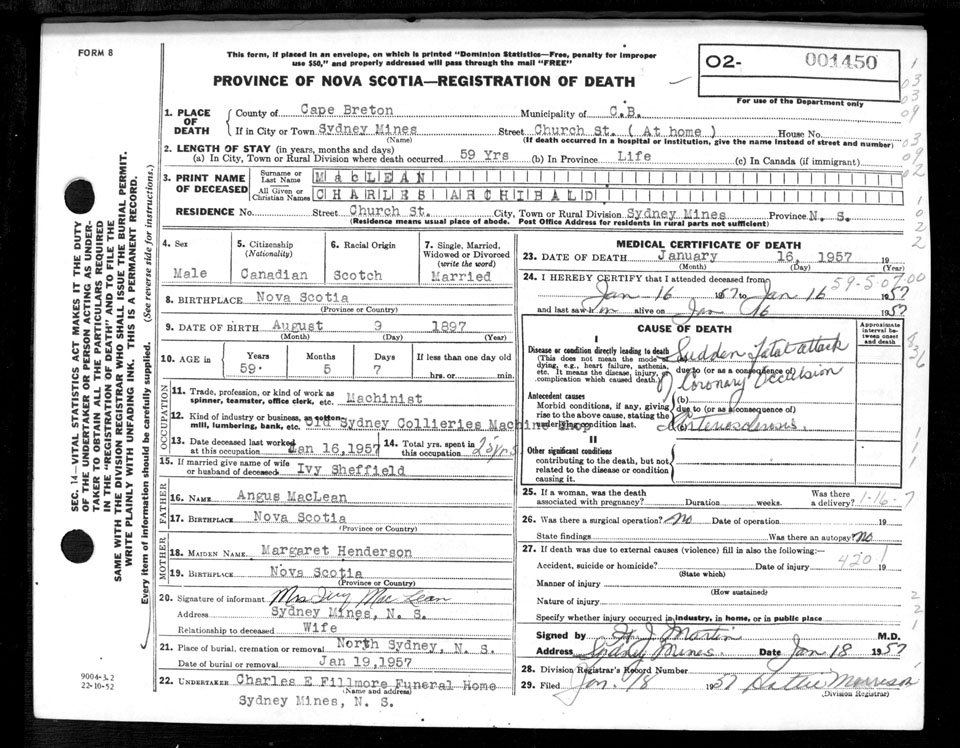 FORM 8
This form, if placed in an envelope, on which is printed "Dominion Statistics—Free, penalty for improper
use $50," and properly addressed will pass through the mail "FREE"
PROVINCE OF NOVA SCOTIA—REGISTRATION OF DEATH
02- 001450
For use of the Department only
1. PLACE OF DEATH
County of Cape Breton Municipality of C.B.
If in City or Town Sydney Mines Street Church St. ( At home ) House No.
(Name) (If death occurred in a hospital or institution, give the name instead of street and number)
2. LENGTH OF STAY (in years, months and days)
(a) In City, Town or Rural Division where death occurred 59 Yrs (b) In Province Life (c) In Canada (if immigrant)
3. PRINT NAME OF DECEASED
Surname or Last Name MacLEAN
All Given or Christian Names CHARLES ARCHIBALD
RESIDENCE No. Street Church St. City, Town or Rural Division Sydney Mines Province N. S.
(Residence means usual place of abode. Post Office Address for residents in rural parts not sufficient)
4. Sex
Male
5. Citizenship (Nationality)
Canadian
6. Racial Origin
Scotch
7. Single, Married, Widowed or Divorced (write the word)
Married
8. BIRTHPLACE Nova Scotia
(Province or Country)
9. DATE OF BIRTH August 9 1897
(Month) (Day) (Year)
10. AGE in Years Months Days If less than one day old
59. 5 7 hrs. or min.
OCCUPATION
11. Trade, profession, or kind of work as spinner, teamster, office clerk, etc. Machinist
12. Kind of industry or business, as cotton-mill, lumbering, bank, etc. Old Sydney Collieries Machine Shop
13. Date deceased last worked at this occupation Jan 16,1957 14. Total yrs. spent in this occupation 25yrs
15. If married give name of wife or husband of deceased Ivy Sheffield
FATHER
16. NAME Angus MacLean
17. BIRTHPLACE Nova Scotia
(Province or Country)
MOTHER
18. MAIDEN NAME Margaret Henderson
19. BIRTHPLACE Nova Scotia
(Province or Country)
20. Signature of informant Mrs Ivy MacLean
Address Sydney Mines, N. S.
Relationship to deceased Wife
21. Place of burial, cremation or removal North Sydney, N. S.
Date of burial or removal Jan 19,1957
22. UNDERTAKER Charles E Fillmore Funeral Home
(Name and address)
Sydney Mines, N. S.
9004-3.2
22-10-52
MEDICAL CERTIFICATE OF DEATH
23. DATE OF DEATH January 16, 1957 19
(Month) (Day) (Year)
24. I HEREBY CERTIFY that I attended deceased from
59-5-07 00
Jan 16 1957 to Jan 16 1957
and last saw him alive on Jan 16 1957
CAUSE OF DEATH
Approximate interval between onset and death
I
Disease or condition directly leading to death Sudden Fatal attack
(This does not mean the mode of dying, e.g., heart failure, asthenia, etc. It means the disease, injury, or complication which caused death.)
due to (or as a consequence of)
of Coronary Occulsion
Antecedent causes (b)
Morbid conditions, if any, giving rise to the above cause, stating the underlying condition last.
due to (or as a consequence of)
Arteriosclerosis.
II
Other significant conditions
contributing to the death, but not related to the disease or condition causing it.
25. If a woman, was the death associated with pregnancy? Duration weeks. Was there a delivery?
1-16-7
26. Was there a surgical operation? No Date of operation 19
State findings Was there an autopsy? No
27. If death was due to external causes (violence) fill in also the following:—
Accident, suicide or homicide? Date of injury 19
(State which)
420.1
Manner of injury
(How sustained)
Nature of injury
Specify whether injury occurred in industry, in home, or in public place
Signed by H. J. Martin M.D.
Address Sydney Mines. Date Jan 18 1957
28. Division Registrar's Record Number
29. Filed Jan. 18 1957 Hattie Morrison
(Division Registrar)
SEC. 14—VITAL STATISTICS ACT MAKES IT THE DUTY
OF THE UNDERTAKER OR PERSON ACTING AS UNDER-
TAKER TO OBTAIN ALL THE PARTICULARS REQUIRED
IN THE "REGISTRATION OF DEATH" AND TO FILE THE
SAME WITH THE DIVISION REGISTRAR WHO SHALL ISSUE THE BURIAL PERMIT.
WRITE PLAINLY WITH UNFADING INK. THIS IS A PERMANENT RECORD.
Every item of information should be carefully supplied. (See reverse side for instructions.)